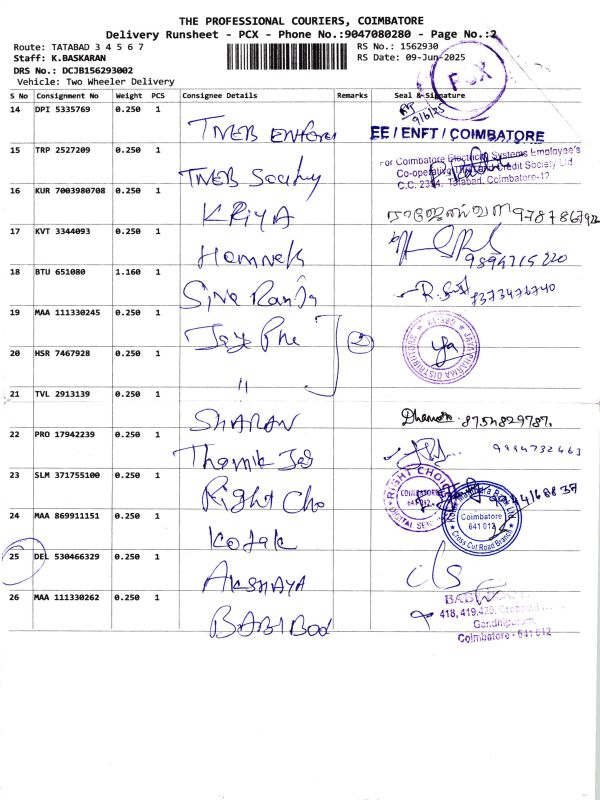 THE PROFESSIONAL COURIERS, COIMBATORE
Delivery Runsheet - PCX - Phone No.:9047080280 - Page No.:2
Route: TATABAD 3 4 5 6 7 RS No.: 1562930
Staff: K.BASKARAN RS Date: 09-Jun-2025
DRS No.: DCJB156293002
Vehicle: Two Wheeler Delivery
PCX
S No Consignment No Weight PCS Consignee Details Remarks Seal & Signature
14 DPI 5335769 0.250 1
9/6/25
TNEB EE / ENFT / COIMBATORE
15 TRP 2527209 0.250 1
For Coimbatore Electricity Systems Employee's
Co-operative Credit Society Ltd
TNEB Society C.C. 2354, Tatabad, Coimbatore-12
16 KUR 7003980708 0.250 1
KRIYA
17 KVT 3344093 0.250 1
9894715220
18 BTU 651080 1.160 1
R.S 7373476740
19 MAA 111330245 0.250 1
Jaye Phe 2
20 HSR 7467928 0.250 1
"
21 TVL 2913139 0.250 1
SHARAN 8754829787.
22 PRO 17942239 0.250 1
9994732463
23 SLM 371755100 0.250 1
Right Cho
RIGHT CHOICE
COIMBATORE
641 012
24 MAA 869911151 0.250 1
Kotak
Coimbatore
641 012
Cross Cut Road Branch
25 DEL 530466329 0.250 1
AKSHAYA
26 MAA 111330262 0.250 1
418, 419,420,
BABI Bod Gandhipuram,
Coimbatore - 641 012